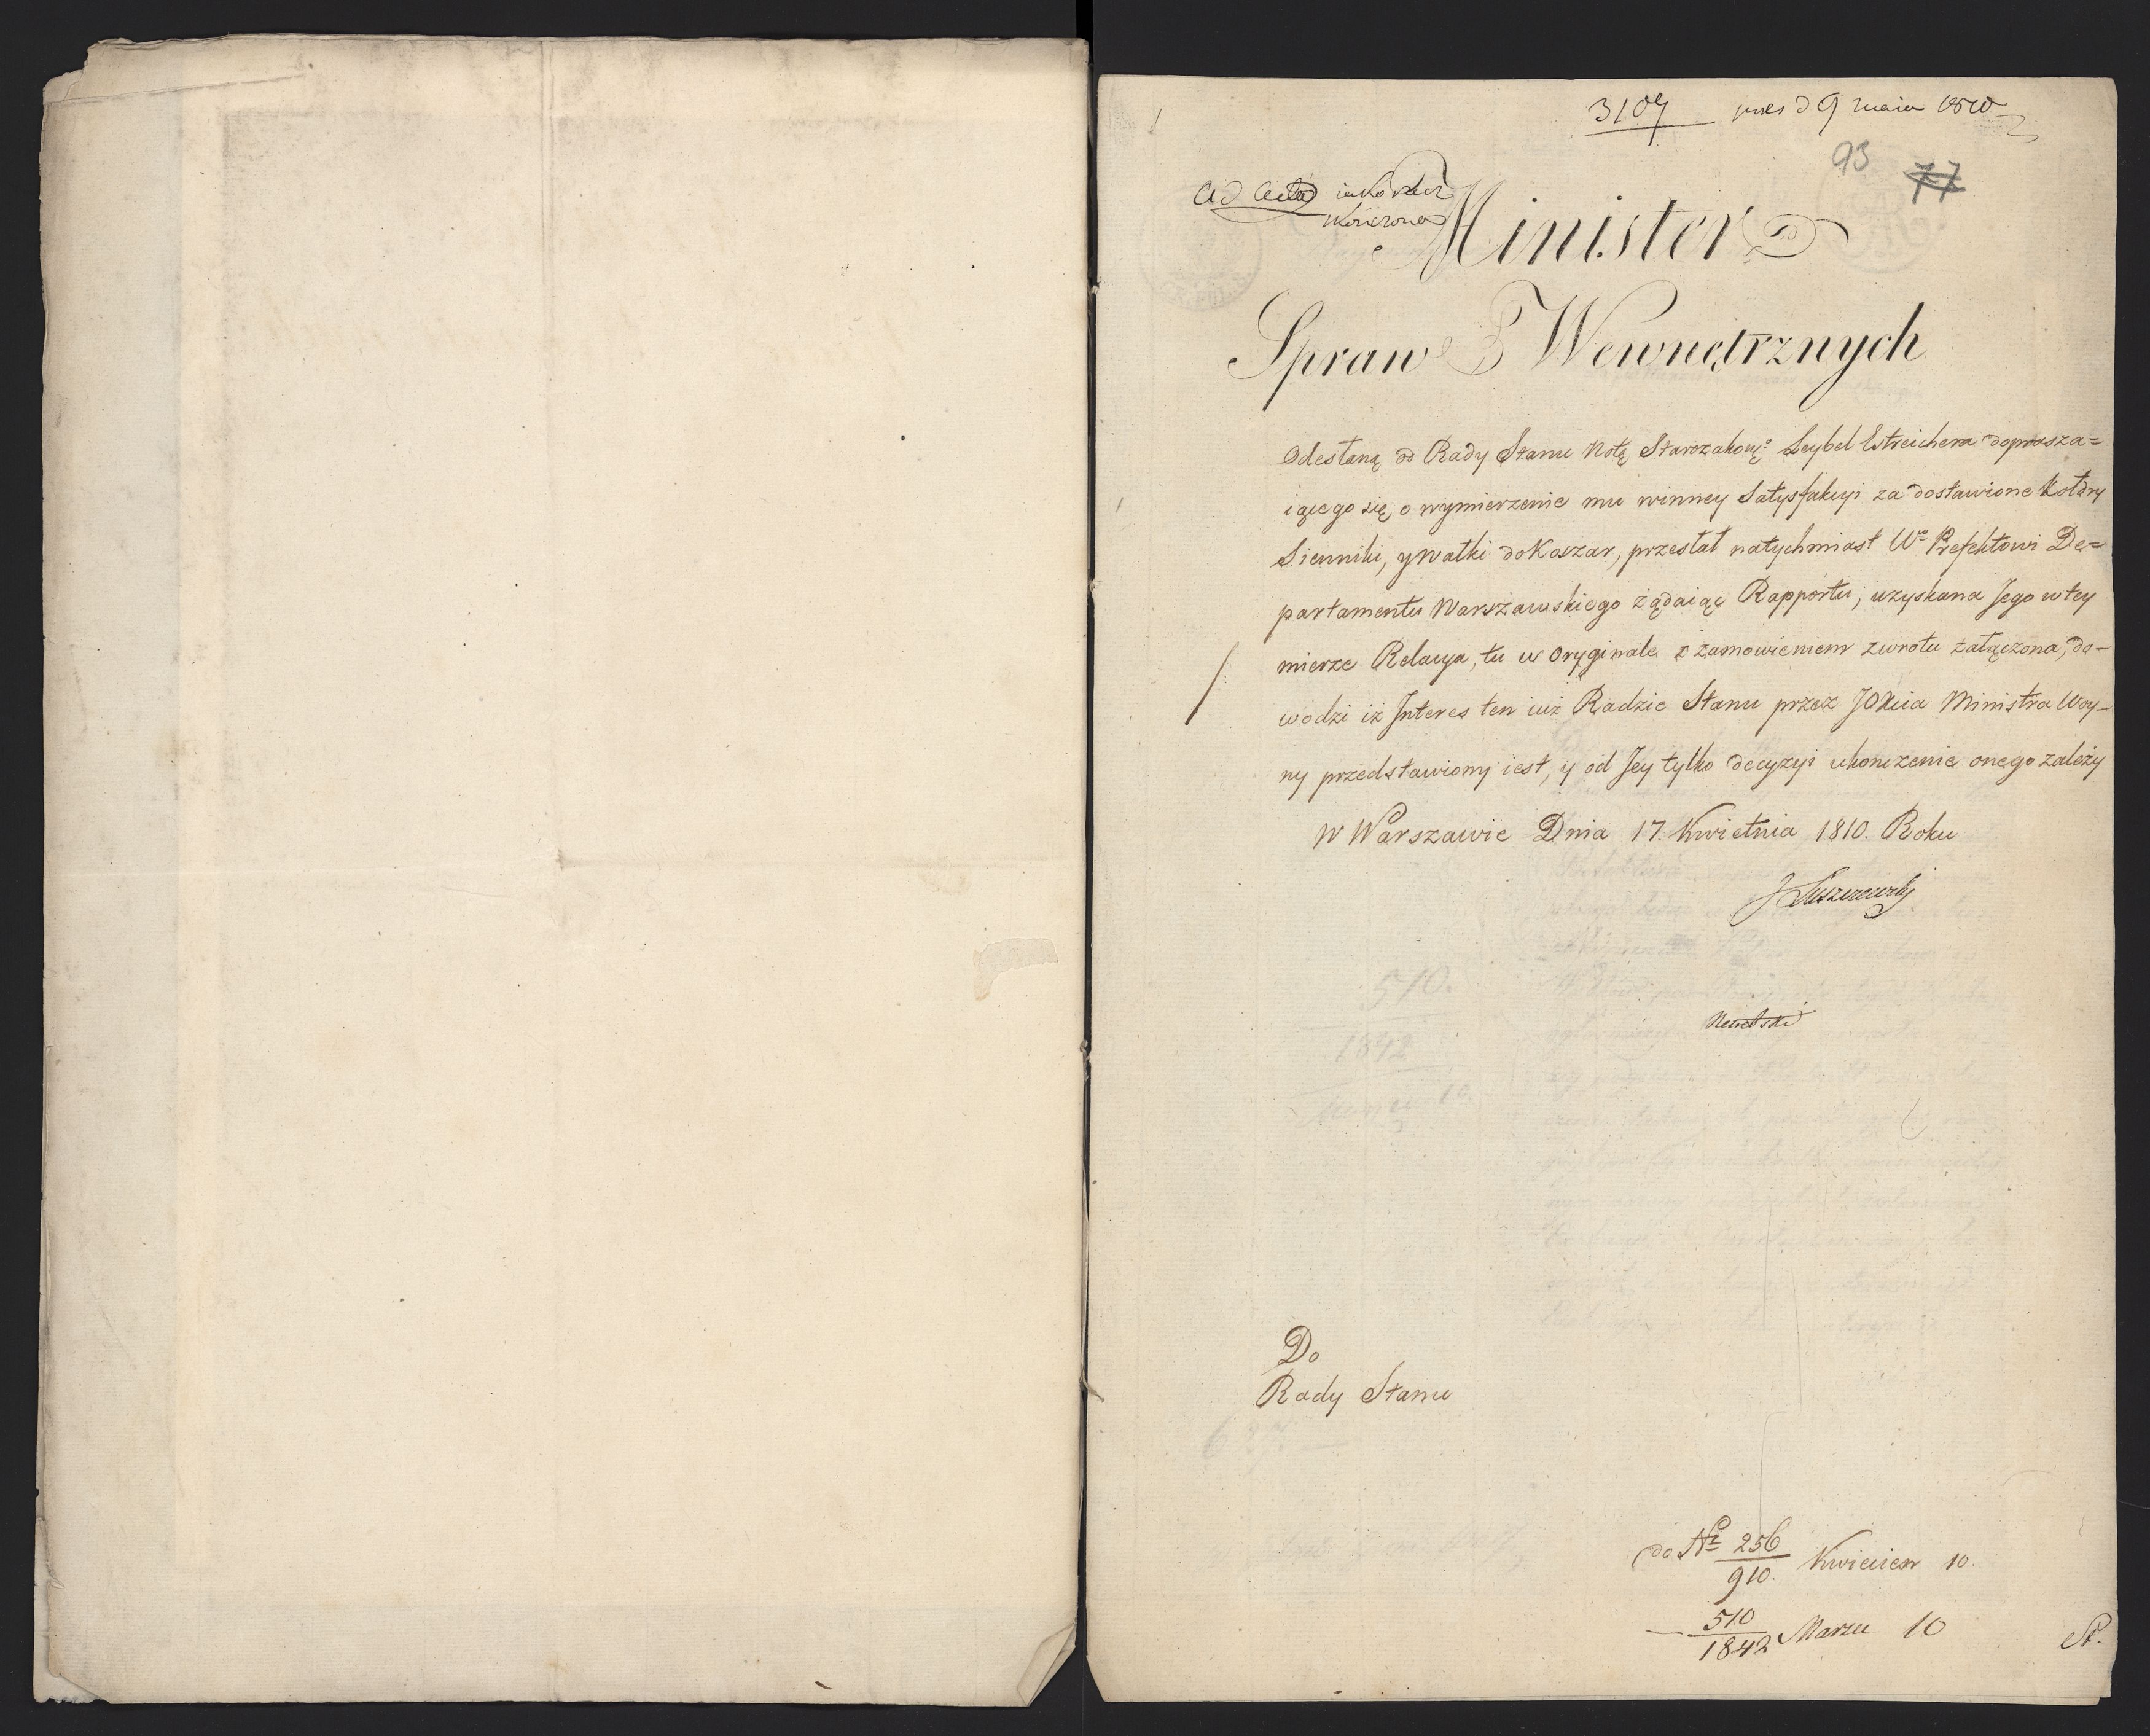 3107 pres d 9 maia 1810
93 77
ad acta iako rzecz
skończona
Minister
Spraw Wewnętrznych
Odesłaną od Rady Stanu Notę Starozakonę: Leybel Estreichera doprasza=
iącego się o wymierzenie mu winney Satysfakcyi za dostawione Kołdry
Sienniki, y Wałki do Koszar, przesłał natychmiast Wu Prefektowi De=
partamentu Warszawskiego żądaiąc Rapportu, uzyskana Jego w tey
mierze Relacya, tu w Oryginale z zamowieniem zwrotu załączona, do-
wodzi iż Interes ten iuż Radzie Stanu przez JOXcia Ministra Woy-
ny przedstawiony iest, y od Jey tylko decyzyi ukonczenie onego zależy
W Warszawie Dnia 17. Kwietnia 1810. Roku
J Łuszczewski
Do
Rady Stanu
do No 256
910. Kwiecien 10.
510
1842 Marzec 10